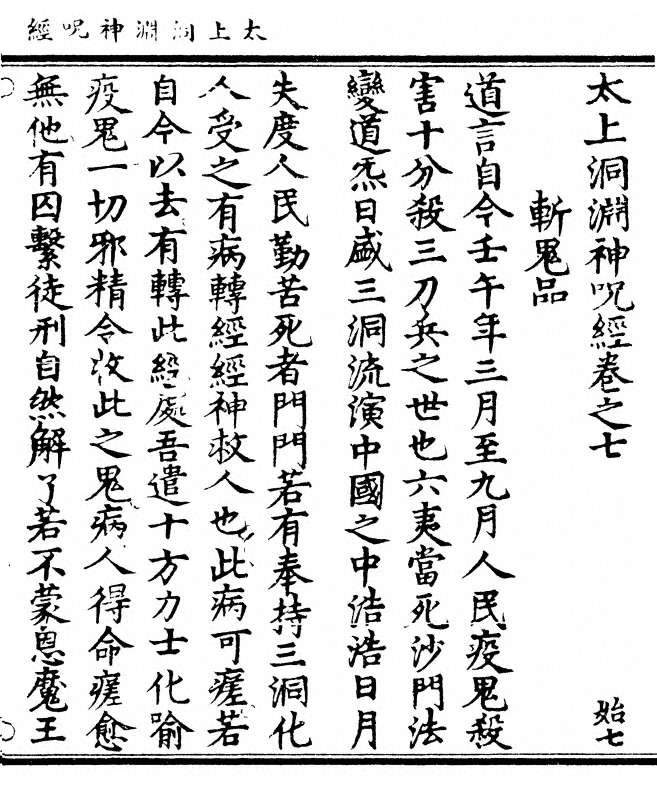 太上洞淵神呪經
太上洞淵神呪經卷之七
始七
斬鬼品
道言自今壬午年三月至九月人民疫鬼殺
害十分殺三刀兵之世也六夷當死沙門法
變道炁日盛三洞流演中國之中浩浩日月
失度人民勤苦死者門門若有奉持三洞化
人受之有病轉經經神救人也此病可瘥若
自今以去有轉此經處吾遣十方力士化喻
疫鬼一切邪精令收此之鬼病人得命瘥愈
無他有囚繫徒刑自然解了若不蒙恩魔王